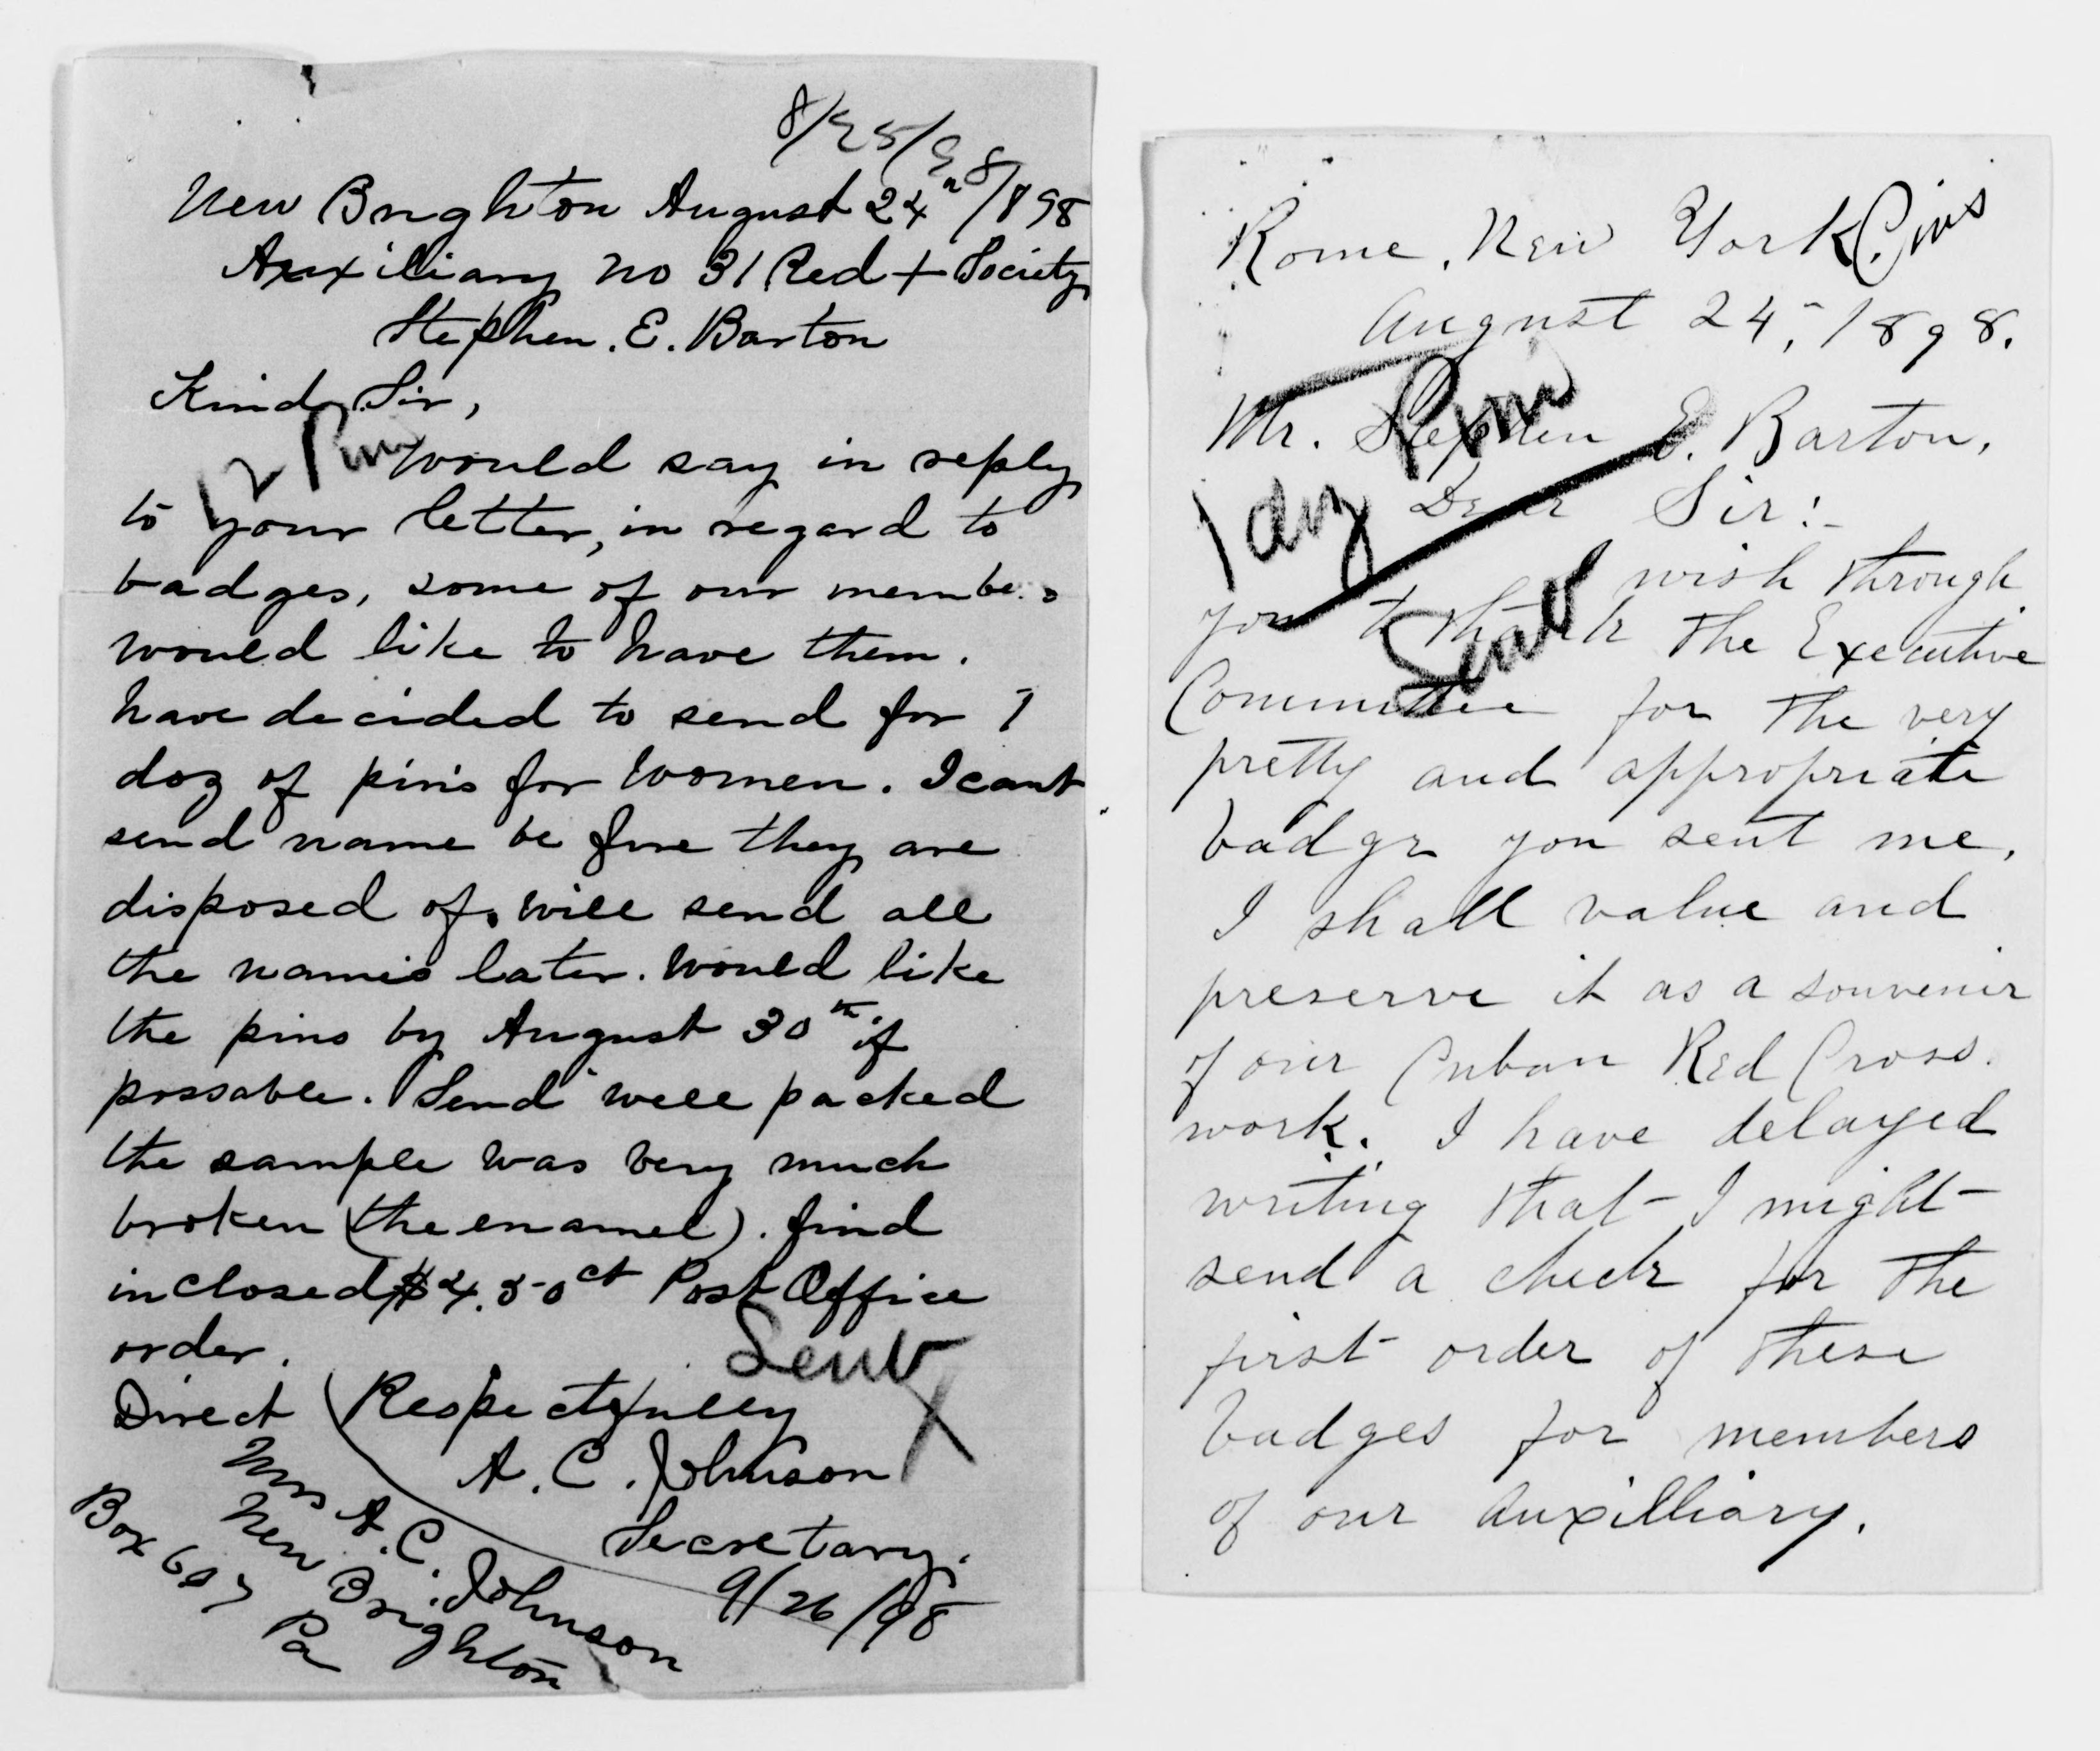 8/25/98
New Brighton August 24th/1898
Auxiliary no 31 Red + Society
Stephen. E. Barton
Kind Sir,
12 Pins
Would say in reply
to your letter, in regard to
badges, some of our members
would like to have them.
have decided to send for 1
doz of pins for Women. I cant
send name be fore they are
disposed of. Will send all
the names later. Would like
the pins by August 30th if
possable. Send well packed
the sample was very much
broken (the enamel). find
inclosed $4.50ct Post Office
order.
Sent
X
Direct
Respectfully
A. C. Johnson
Secretary.
9/26/98
Mrs A. C. Johnson
New Brighton
Box 607
Pa
Rome, New York Pins
August 24, 1898.
Mr. Stephen E. Barton,
Dear Sir:-
1 doz Pins
Sent
I wish through
you to thank the Executive
Committee for the very
pretty and appropriate
badge you sent me.
I shall value and
preserve it as a souvenir
of our Cuban Red Cross.
work. I have delayed
writing that I might
send a check for the
first order of these
badges for members
of our Auxilliary.